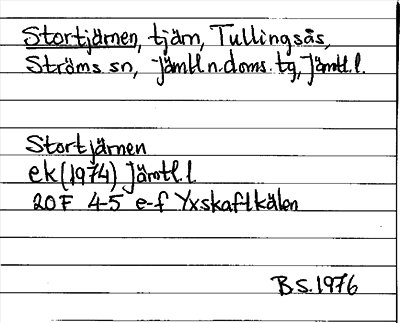 Stortjärnen, tjärn, Tullingsås,
Ströms sn, Jämtl.n.doms.tg, Jämtl.l.
Stortjärnen
ek (1974) Jämtl.l
20F 4-5 e-f Yxskaftkälen
B.S. 1976